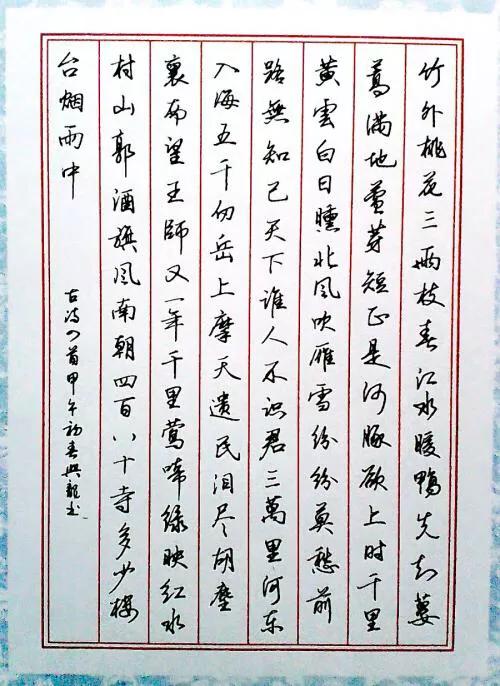 竹外桃花三兩枝春江水暖鴨先知蔞
蒿滿地蘆芽短正是河豚欲上时千里
黃雲白日曛北風吹雁雪紛紛莫愁前
路無知己天下誰人不識君三萬里河东
入海五千仞岳上摩天遺民泪尽胡塵
裏南望王師又一年千里鶯啼綠映紅水
村山郭酒旗風南朝四百八十寺多少樓
台烟雨中
古诗四首甲午初春興龍书